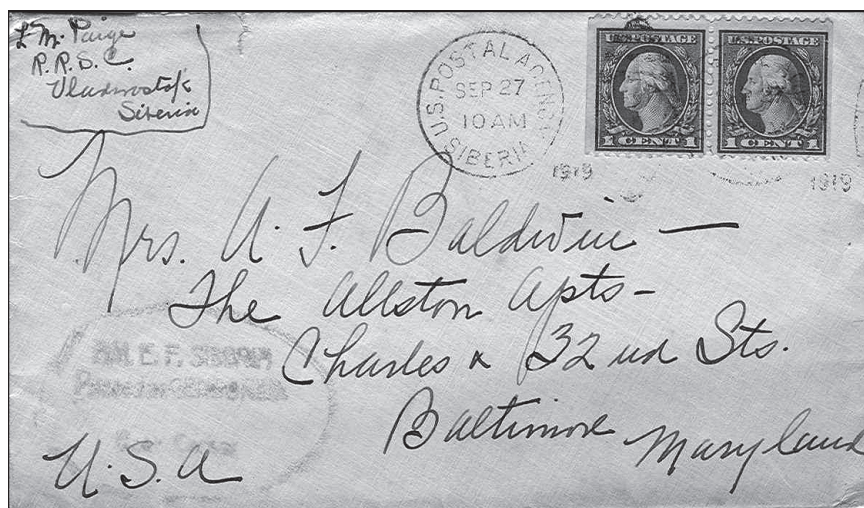 L. M. Paige
R.R.S.C.
Vladivostok
Siberia
U.S. POSTAL AGENCY
SEP 27
10 AM
SIBERIA
1919
1919
U.S. POSTAGE
1 CENT 1
U.S. POSTAGE
1 CENT 1
Mrs. A. F. Baldwin —
The Allston Apts—
Charles & 32nd Sts.
Baltimore Maryland
U.S.A
AM. E. F. SIBERIA